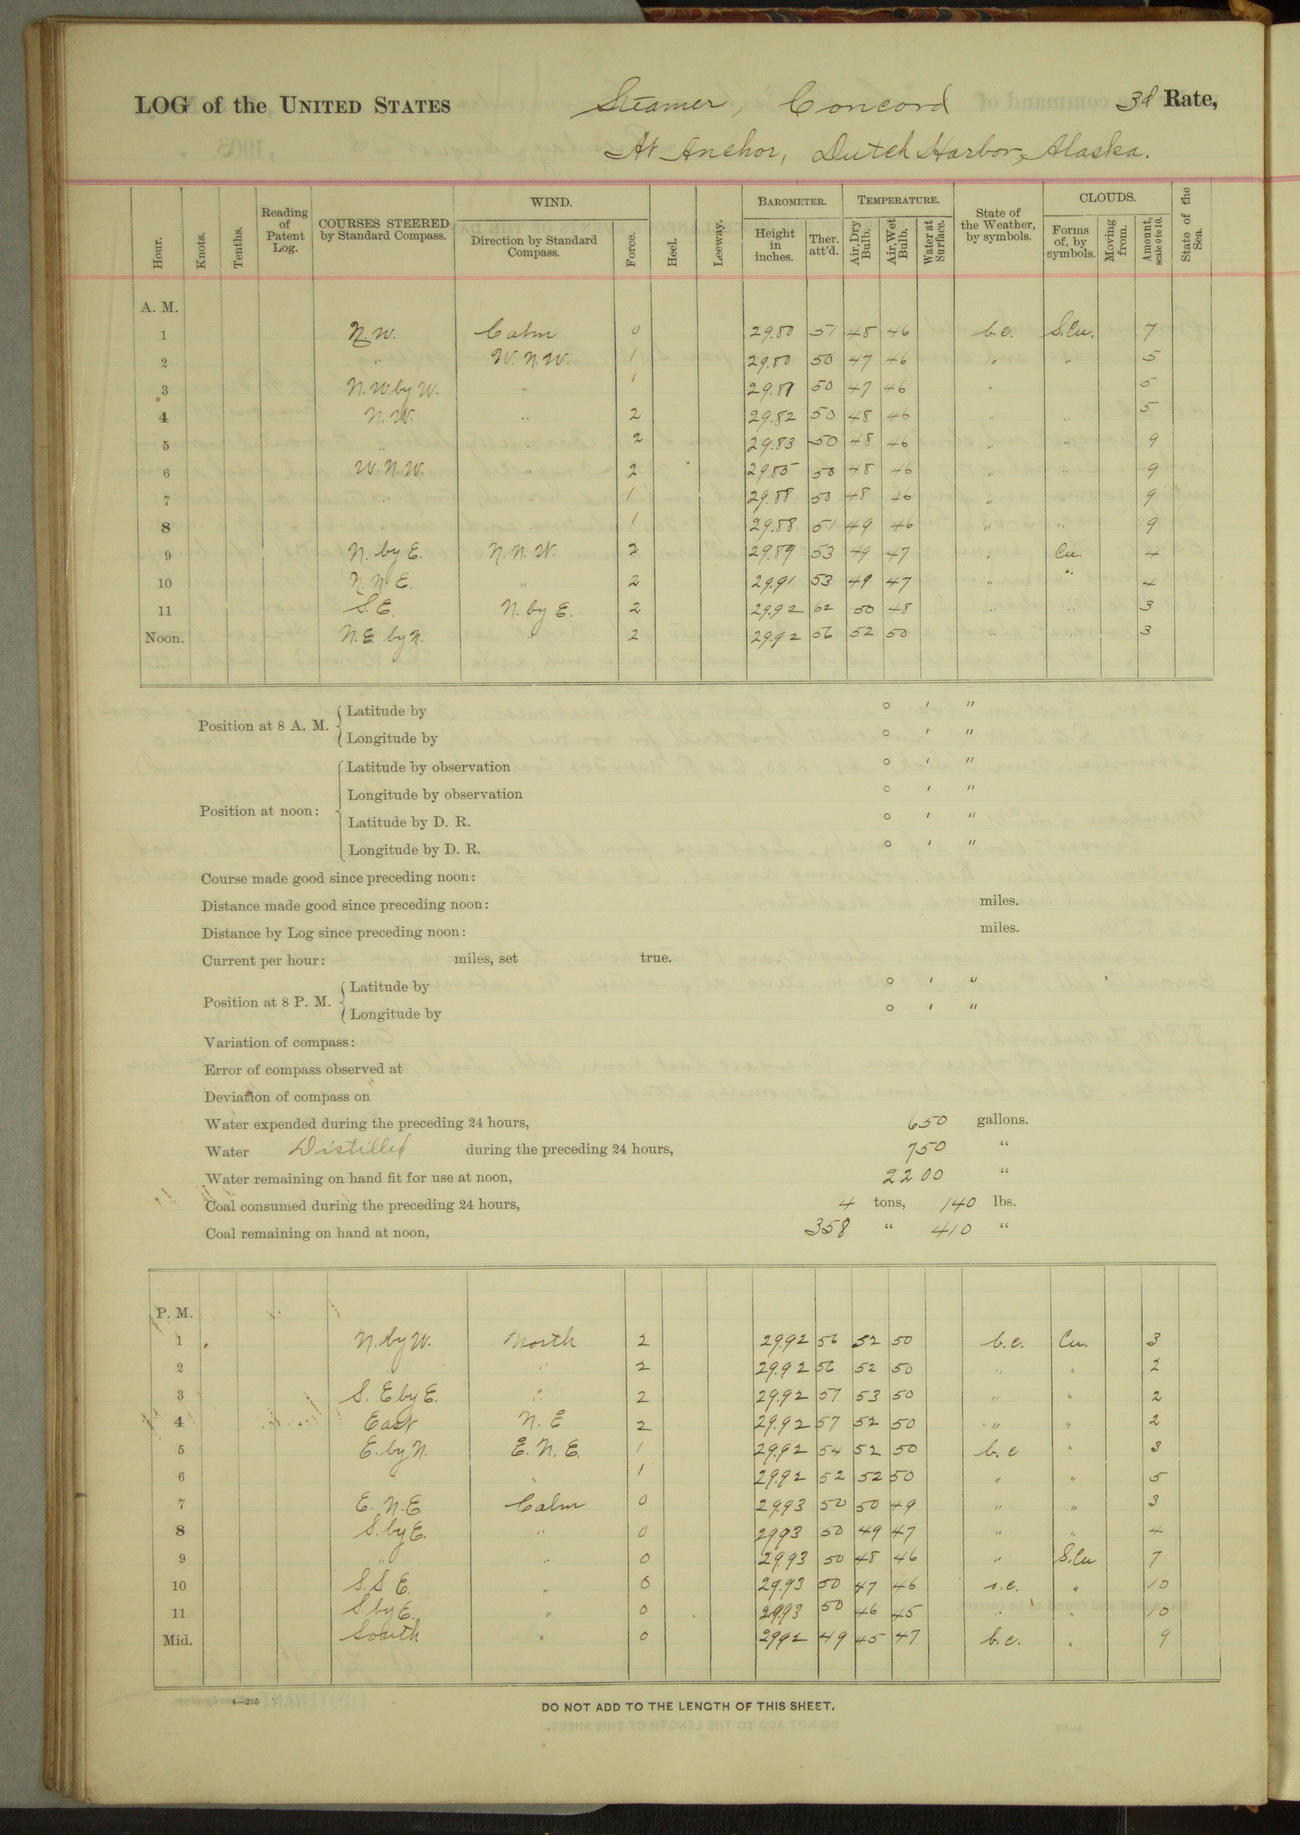 LOG of the UNITED STATES Steamer, Concord 3d Rate,
At Anchor, Dutch Harbor, Alaska.
Hour. Knots. Tenths. Reading of Patent Log. COURSES STEERED by Standard Compass. WIND. Direction by Standard Compass. Force. Heel. Leeway. BAROMETER. Height in inches. Ther. att'd. TEMPERATURE. Air, Dry Bulb. Air, Wet Bulb. Water at Surface. State of the Weather, by symbols. CLOUDS. Forms of, by symbols. Moving from. Amount, scale 0 to 10. State of the Sea.
A. M.
1 N.W. Calm 0 29.80 51 48 46 b.c. S.Cu. 7
2 " W.N.W. 1 29.80 50 47 46 " " 5
3 N.W. by W. " 1 29.81 50 47 46 " 5
4 N.W. " 2 29.82 50 48 46 " " 5
5 " " 2 29.83 50 48 46 " " 9
6 W.N.W. " 2 29.85 50 48 46 " " 9
7 " " 1 29.88 50 48 46 " " 9
8 " " 1 29.88 51 49 46 " " 9
9 N. by E. N.N.W. 2 29.89 53 49 47 " Cu. 4
10 N.N.E. " 2 29.91 53 49 47 " " 4
11 S.E. N. by E. 2 29.92 62 50 48 " " 3
Noon. N.E. by N. " 2 29.92 56 52 50 " " 3
Position at 8 A. M. Latitude by ° ' "
Longitude by ° ' "
Position at noon: Latitude by observation ° ' "
Longitude by observation ° ' "
Latitude by D. R. ° ' "
Longitude by D. R. ° ' "
Course made good since preceding noon:
Distance made good since preceding noon: miles.
Distance by Log since preceding noon: miles.
Current per hour: miles, set true.
Position at 8 P. M. Latitude by ° ' "
Longitude by ° ' "
Variation of compass:
Error of compass observed at
Deviation of compass on
Water expended during the preceding 24 hours, 650 gallons.
Water Distilled during the preceding 24 hours, 750 "
Water remaining on hand fit for use at noon, 2200 "
Coal consumed during the preceding 24 hours, 4 tons, 140 lbs.
Coal remaining on hand at noon, 358 " 410 "
P. M.
1 N. by W. North 2 29.92 56 52 50 b.c. Cu. 3
2 " 2 29.92 56 52 50 " " 2
3 S. E by E. " 2 29.92 57 53 50 " " 2
4 East N. E 2 29.92 57 52 50 " " 2
5 E. by N. E. N. E. 1 29.92 54 52 50 b.c " 3
6 " 1 29.92 52 52 50 " " 5
7 E. N. E Calm 0 29.93 50 50 49 " " 3
8 S. by E. " 0 29.93 50 49 47 " " 4
9 " " 0 29.93 50 48 46 " S.Cu 7
10 S. S E. " 0 29.93 50 47 46 " 10
11 S. by E. " 0 29.93 50 46 45 " " 10
Mid. South " 0 29.92 49 45 47 b.c. " 9
4—265
DO NOT ADD TO THE LENGTH OF THIS SHEET.